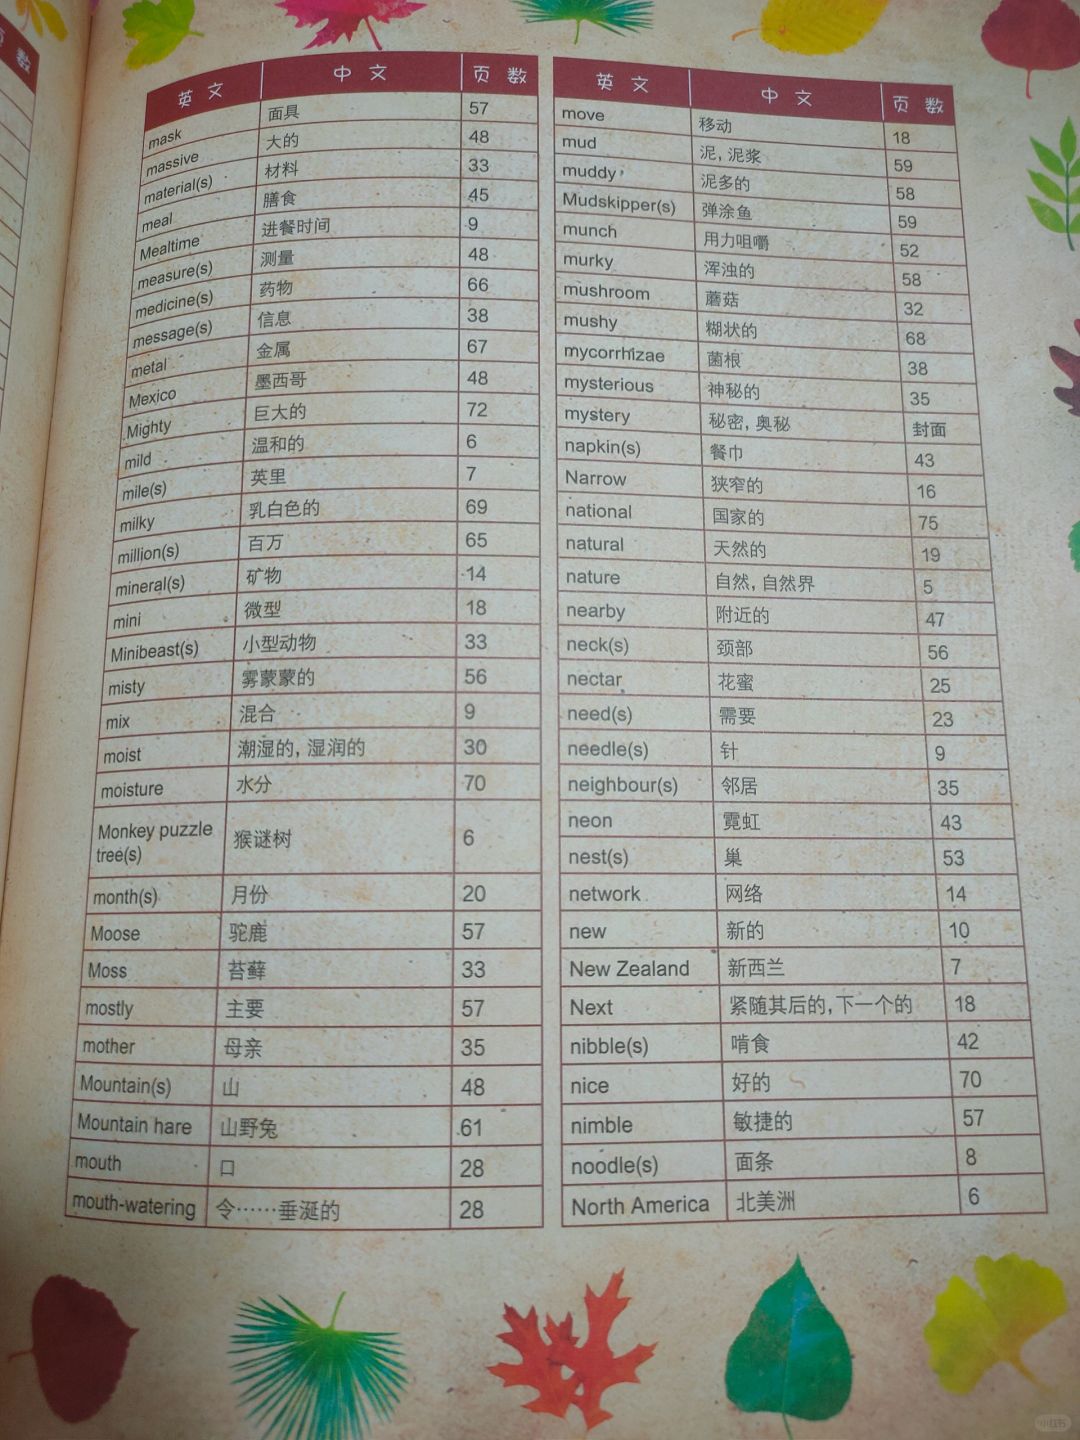 页 数
英 文 中 文 页 数
mask 面具 57
massive 大的 48
material(s) 材料 33
meal 膳食 45
Mealtime 进餐时间 9
measure(s) 测量 48
medicine(s) 药物 66
message(s) 信息 38
metal 金属 67
Mexico 墨西哥 48
Mighty 巨大的 72
mild 温和的 6
mile(s) 英里 7
milky 乳白色的 69
million(s) 百万 65
mineral(s) 矿物 14
mini 微型 18
Minibeast(s) 小型动物 33
misty 雾蒙蒙的 56
mix 混合 9
moist 潮湿的, 湿润的 30
moisture 水分 70
Monkey puzzle
tree(s) 猴谜树 6
month(s) 月份 20
Moose 驼鹿 57
Moss 苔藓 33
mostly 主要 57
mother 母亲 35
Mountain(s) 山 48
Mountain hare 山野兔 61
mouth 口 28
mouth-watering 令……垂涎的 28
英 文 中 文 页 数
move 移动 18
mud 泥, 泥浆 59
muddy 泥多的 58
Mudskipper(s) 弹涂鱼 59
munch 用力咀嚼 52
murky 浑浊的 58
mushroom 蘑菇 32
mushy 糊状的 68
mycorrhizae 菌根 38
mysterious 神秘的 35
mystery 秘密, 奥秘 封面
napkin(s) 餐巾 43
Narrow 狭窄的 16
national 国家的 75
natural 天然的 19
nature 自然, 自然界 5
nearby 附近的 47
neck(s) 颈部 56
nectar 花蜜 25
need(s) 需要 23
needle(s) 针 9
neighbour(s) 邻居 35
neon 霓虹 43
nest(s) 巢 53
network 网络 14
new 新的 10
New Zealand 新西兰 7
Next 紧随其后的, 下一个的 18
nibble(s) 啃食 42
nice 好的 70
nimble 敏捷的 57
noodle(s) 面条 8
North America 北美洲 6
小红书